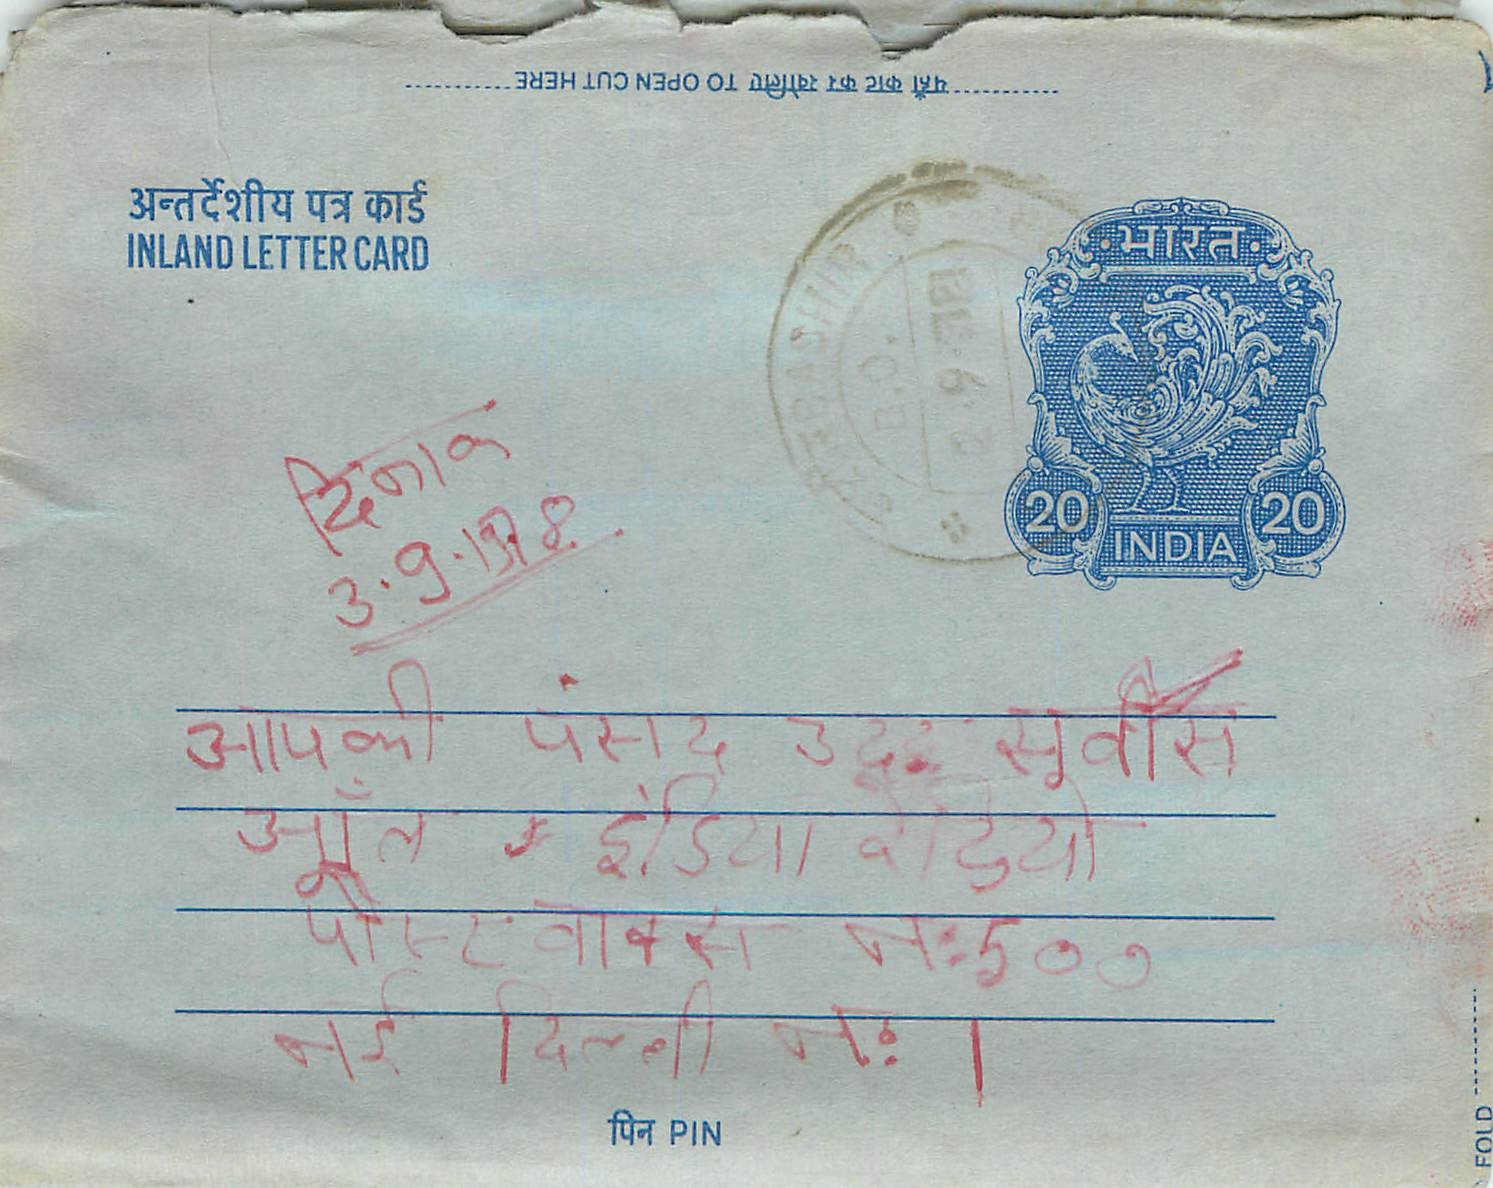 यहाँ काट कर खोलिए TO OPEN CUT HERE
अन्तर्देशीय पत्र कार्ड
INLAND LETTER CARD
भारत
20 20
INDIA
दिनाक
3.9.1978
आपकी पंसद उर्दू सर्वीस
ऑल इंडिया रेडियो
पोस्ट वाक्स नः 500
नई दिल्ली नः 1
पिन PIN
FOLD